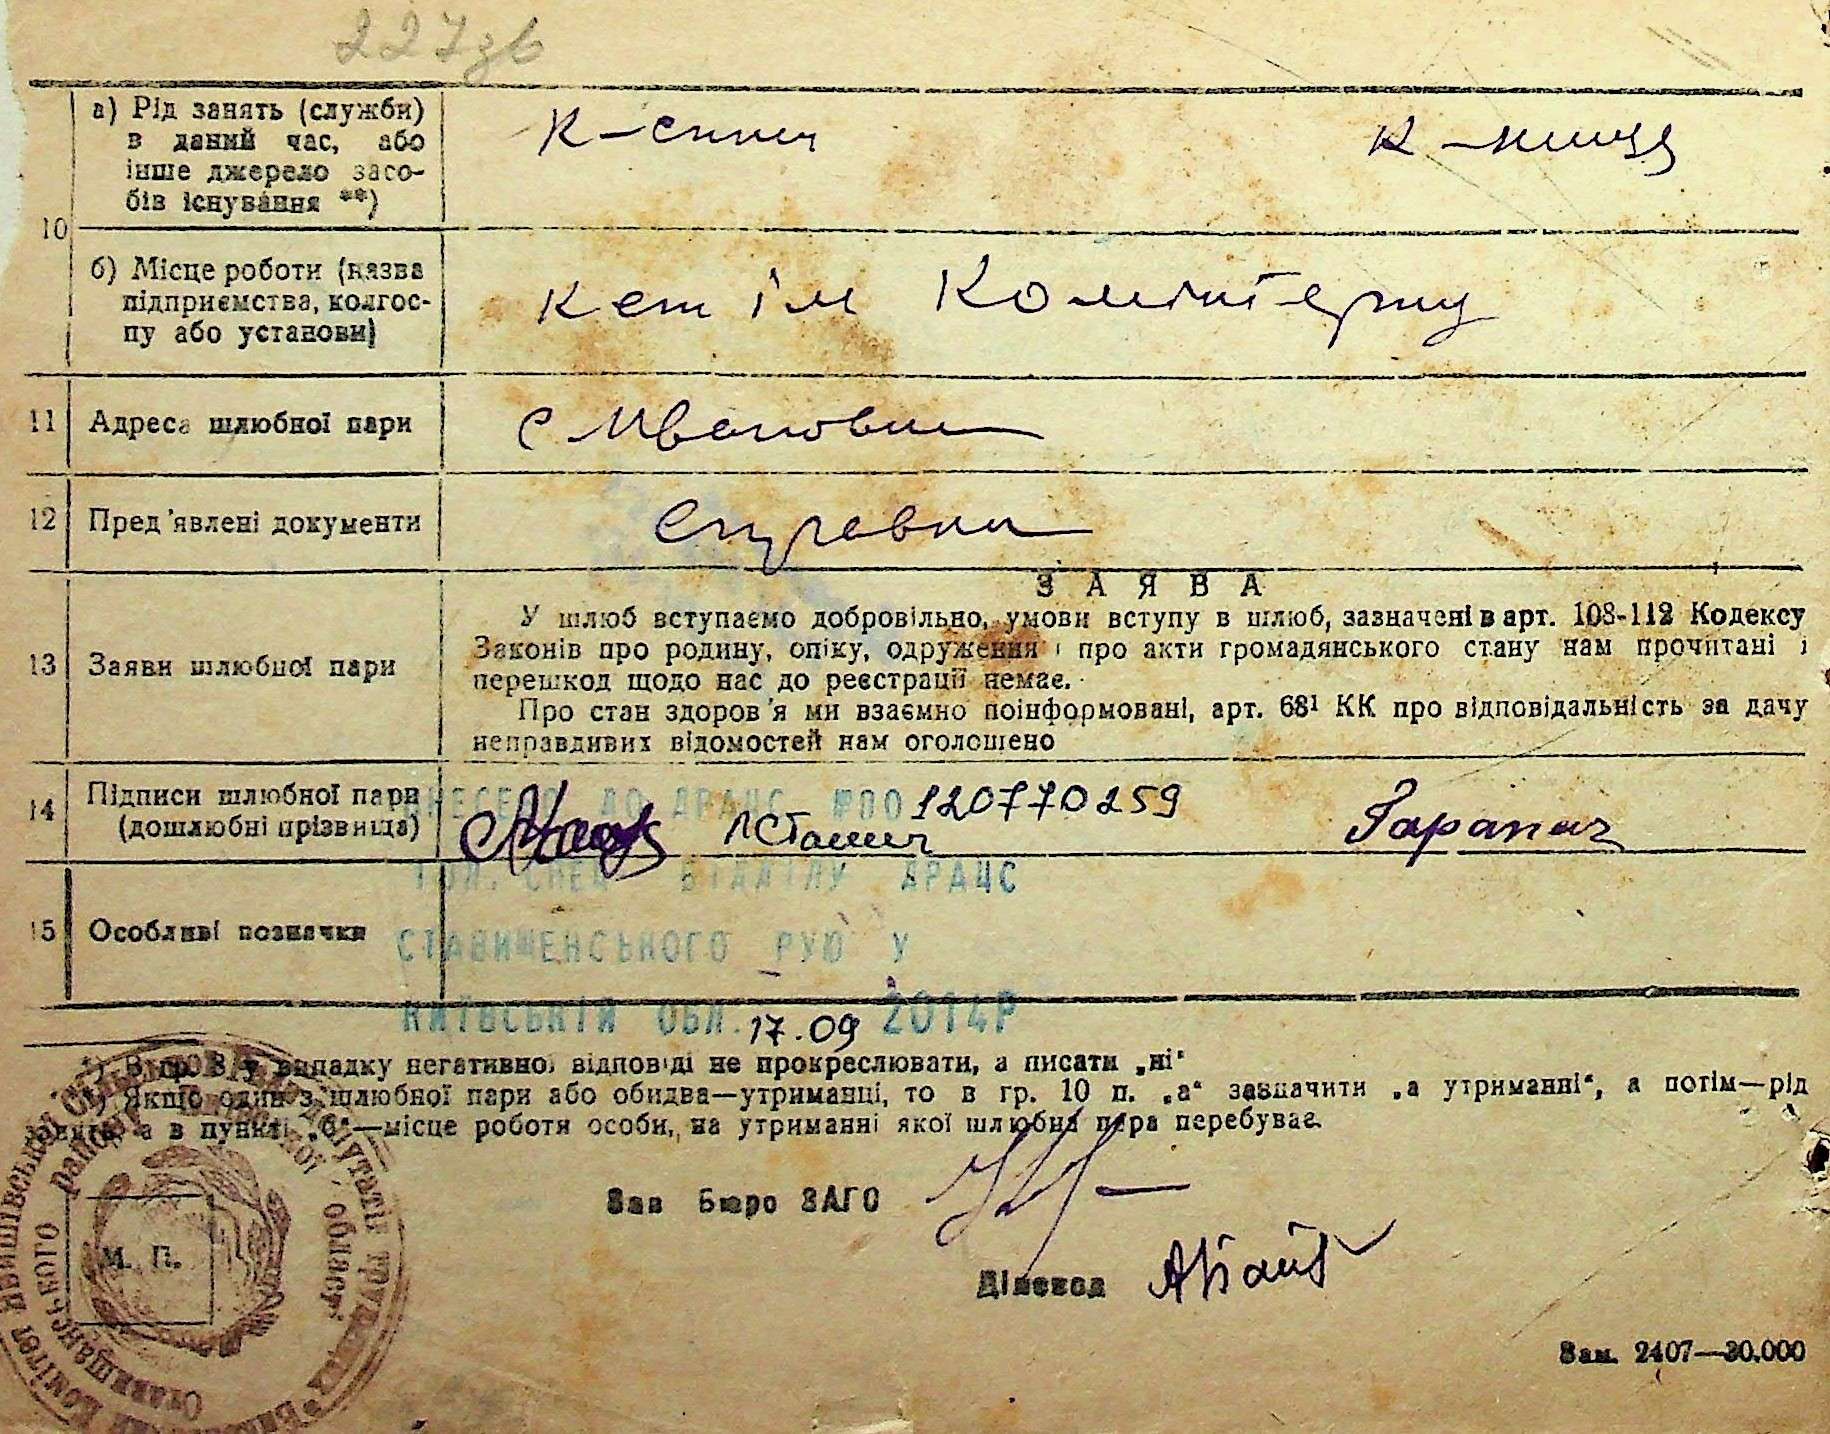 227зв
а) Рід занять (служби)
в даний час, або
інше джерело засо-
бів існування **)
10
б) Місце роботи (назва
підприємства, колгос-
пу або установи)
ім Комінтерну
11 Адреса шлюбної пари
с
12 Пред'явлені документи
Справки
ЗАЯВА
У шлюб вступаємо добровільно, умови вступу в шлюб, зазначені в арт. 108-112 Кодексу
Законів про родину, опіку, одруження і про акти громадянського стану нам прочитані і
перешкод щодо нас до реєстрації немає.
Про стан здоров'я ми взаємно поінформовані, арт. 68¹ КК про відповідальність за дачу
неправдивих відомостей нам оголошено
13 Заяви шлюбної пари
14 Підписи шлюбної пари
(дошлюбні прізвища)
ВНЕСЕНО ДО ДРАЦС №00120770259
ГОЛ. СПЕЦ ВІДДІЛУ ДРАЦС
15 Особливі позначки
СТАВИЩЕНСЬКОГО РУЮ У
КИЇВСЬКІЙ ОБЛ. 17.09 2014Р
*) В гр. 8 у випадку негативної відповіді не прокреслювати, а писати „ні“
**) Якщо один з шлюбної пари або обидва—утриманці, то в гр. 10 п. „а“ зазначити „а утриманні“, а потім—рід
занять, а в пункті „б“—місце роботи особи, на утриманні якої шлюбна пара перебуває.
Зав Бюро ЗАГС
М. П.
Діловод
Зам. 2407—30.000